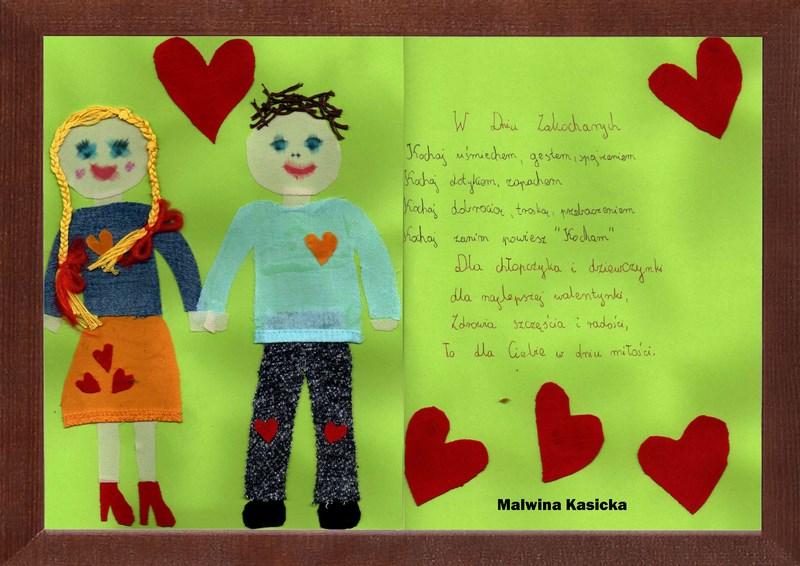 W Dniu Zakochanych
Kochaj uśmiechem, gestem, spojrzeniem
Kochaj dotykiem, zapachem
Kochaj dobrocią, troską, przebaczeniem
Kochaj zanim powiesz "Kocham"
Dla chłopczyka i dziewczynki
dla najlepszej walentynki,
Zdrowia szczęścia i radości,
To dla Ciebie w dniu miłości.
Malwina Kasicka